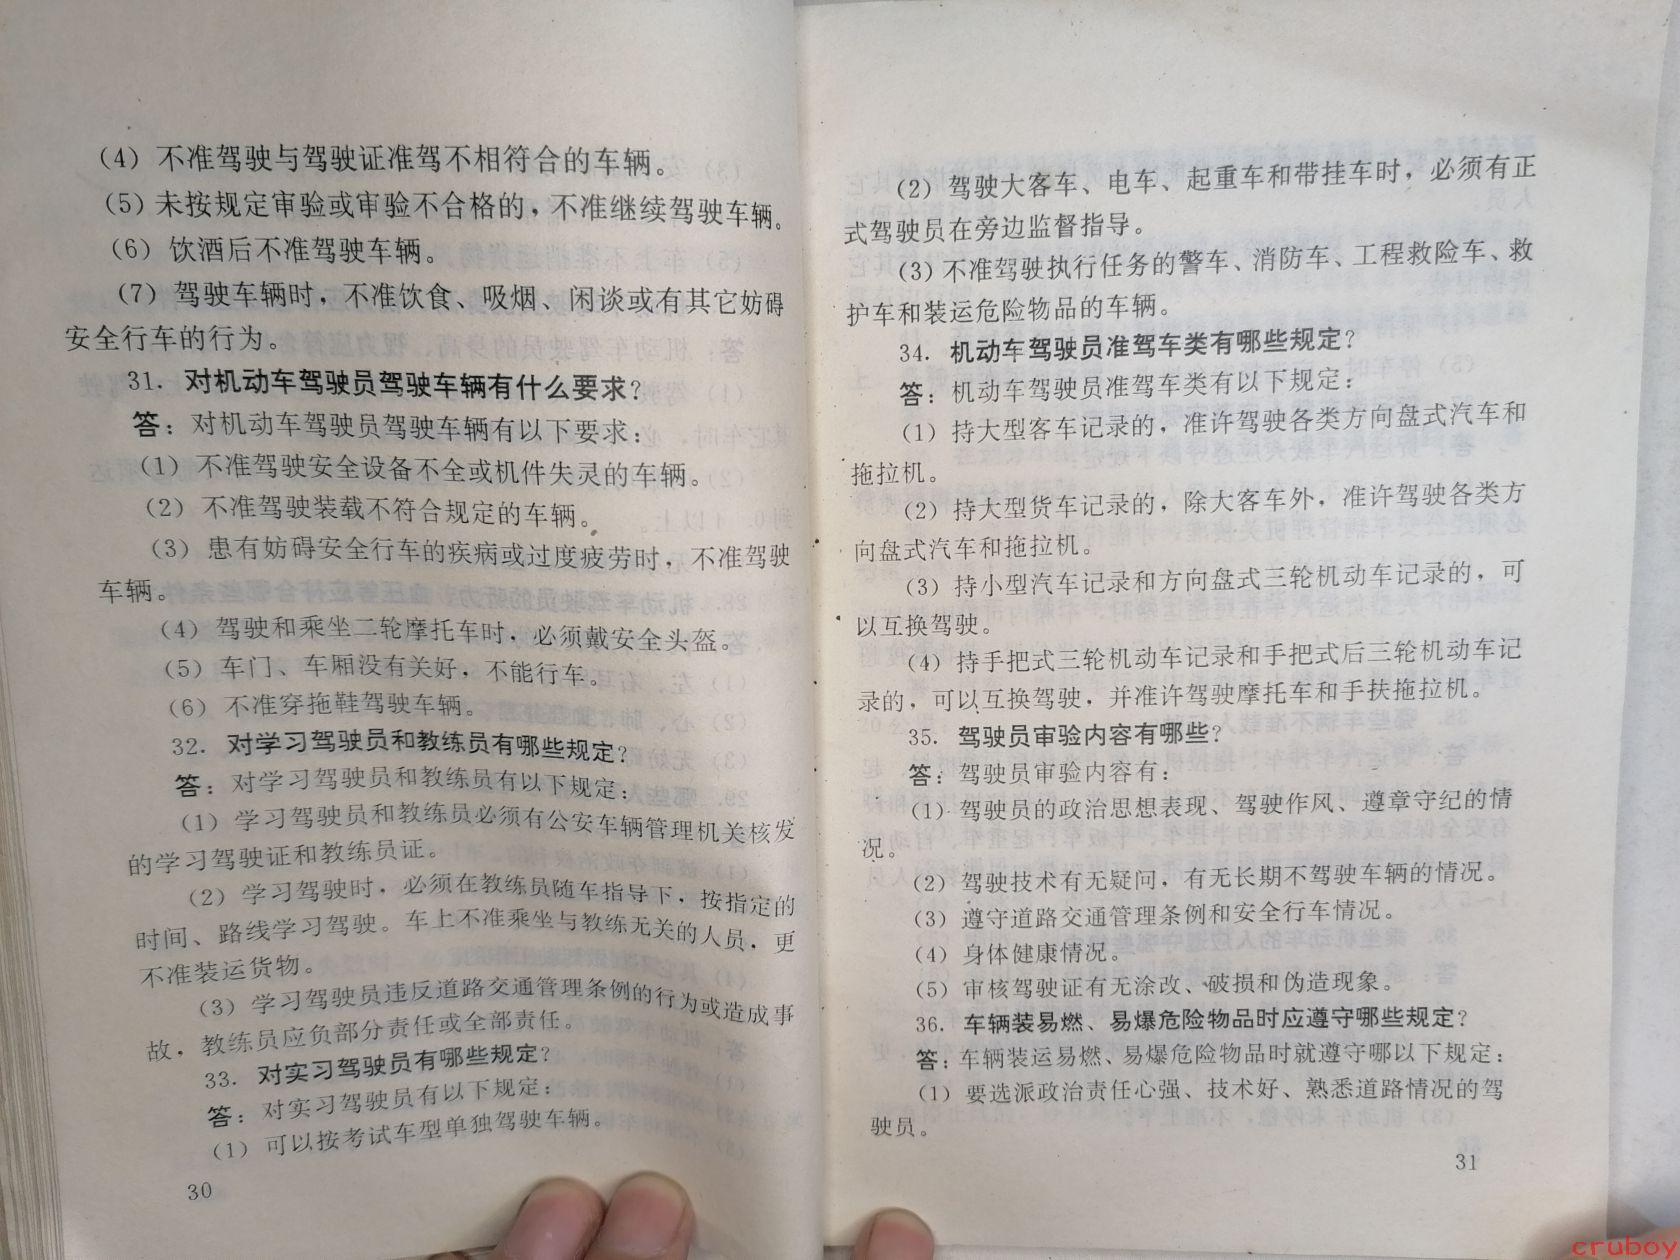 (4) 不准驾驶与驾驶证准驾不相符合的车辆。
(5) 未按规定审验或审验不合格的，不准继续驾驶车辆。
(6) 饮酒后不准驾驶车辆。
(7) 驾驶车辆时，不准饮食、吸烟、闲谈或有其它妨碍
安全行车的行为。
31. 对机动车驾驶员驾驶车辆有什么要求？
答：对机动车驾驶员驾驶车辆有以下要求：
(1) 不准驾驶安全设备不全或机件失灵的车辆。
(2) 不准驾驶装载不符合规定的车辆。
(3) 患有妨碍安全行车的疾病或过度疲劳时，不准驾驶
车辆。
(4) 驾驶和乘坐二轮摩托车时，必须戴安全头盔。
(5) 车门、车厢没有关好，不能行车。
(6) 不准穿拖鞋驾驶车辆。
32. 对学习驾驶员和教练员有哪些规定？
答：对学习驾驶员和教练员有以下规定：
(1) 学习驾驶员和教练员必须有公安车辆管理机关核发
的学习驾驶证和教练员证。
(2) 学习驾驶时，必须在教练员随车指导下，按指定的
时间、路线学习驾驶。车上不准乘坐与教练无关的人员，更
不准装运货物。
(3) 学习驾驶员违反道路交通管理条例的行为或造成事
故，教练员应负部分责任或全部责任。
33. 对实习驾驶员有哪些规定？
答：对实习驾驶员有以下规定：
(1) 可以按考试车型单独驾驶车辆。
30
(2) 驾驶大客车、电车、起重车和带挂车时，必须有正
式驾驶员在旁边监督指导。
(3) 不准驾驶执行任务的警车、消防车、工程救险车、救
护车和装运危险物品的车辆。
34. 机动车驾驶员准驾车类有哪些规定？
答：机动车驾驶员准驾车类有以下规定：
(1) 持大型客车记录的，准许驾驶各类方向盘式汽车和
拖拉机。
(2) 持大型货车记录的，除大客车外，准许驾驶各类方
向盘式汽车和拖拉机。
(3) 持小型汽车记录和方向盘式三轮机动车记录的，可
以互换驾驶。
(4) 持手把式三轮机动车记录和手把式后三轮机动车记
录的，可以互换驾驶，并准许驾驶摩托车和手扶拖拉机。
35. 驾驶员审验内容有哪些？
答：驾驶员审验内容有：
(1) 驾驶员的政治思想表现、驾驶作风、遵章守纪的情
况。
(2) 驾驶技术有无疑问，有无长期不驾驶车辆的情况。
(3) 遵守道路交通管理条例和安全行车情况。
(4) 身体健康情况。
(5) 审核驾驶证有无涂改、破损和伪造现象。
36. 车辆装易燃、易爆危险物品时应遵守哪些规定？
答：车辆装运易燃、易爆危险物品时就遵守哪以下规定：
(1) 要选派政治责任心强、技术好、熟悉道路情况的驾
驶员。
31
cruboy